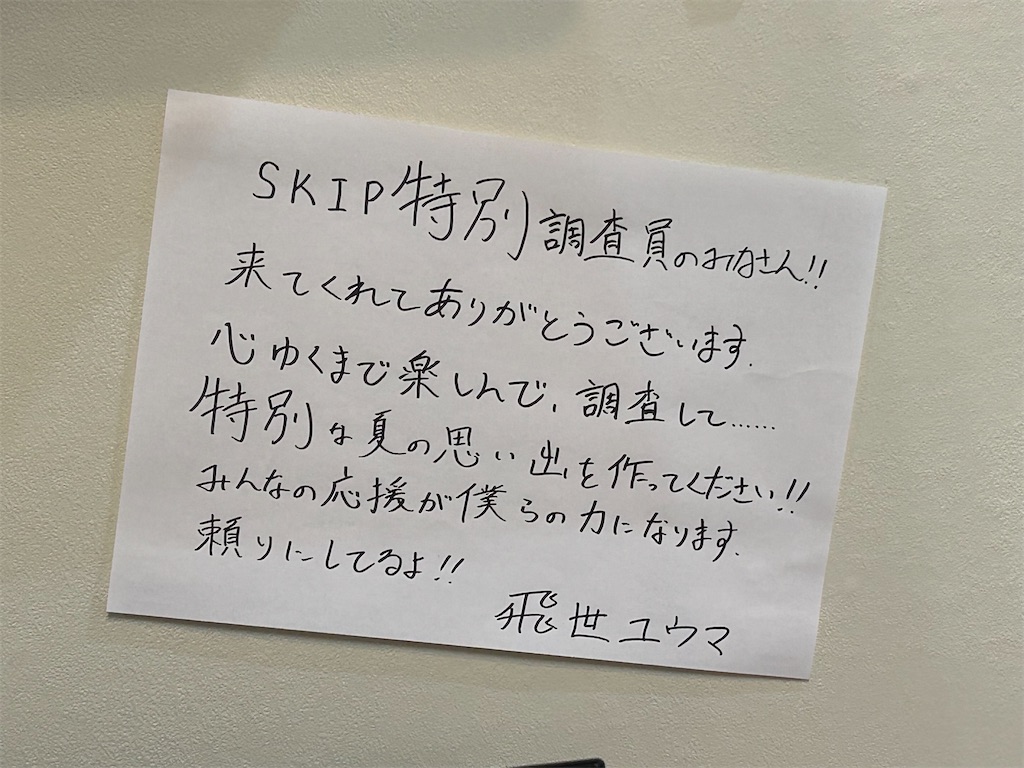 SKIP特別調査員のみなさん!!
来てくれてありがとうございます.
心ゆくまで楽しんで、調査して……
特別な夏の思い出を作ってください!!
みんなの応援が僕らの力になります.
頼りにしてるよ!!
飛世ユウマ